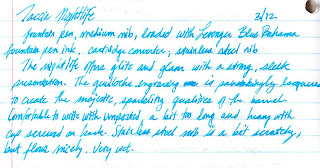 Taccia Nightlife 3/12
fountain pen, medium nib, loaded with Levenger Blue Bahama
fountain pen ink, cartridge converter; stainless steel nib
The nightlife offers glitz and glam with a strong, sleek
presentation. The guilloche engraving is painstakingly lacquered
to create the majestic, sparkling qualities of the barrel.
Comfortable to write with unposted, a bit too long and heavy with
cap screwed on
Stainless steel nib is a bit scratchy,
but flows nicely. Very wet.